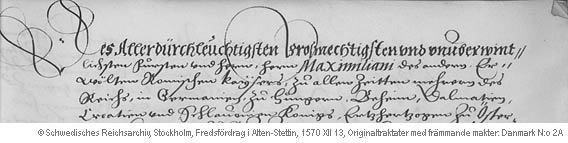 Des Allerdürchleuchtigsten Grosmechtigsten vnd vnuberwint=
lichsten Fuersten vnd hern, hern Maximiliani des andern Er=
wölten Romischen kaysers, zu allen Zeitten mehrern des
Reichs, in Germanien, zu Hungern, Beheim, Dalmatien,
Croatien vnd Schlauonien Konigs, Ertzhertzogen zu Öster
© Schwedisches Reichsarchiv, Stockholm, Fredsfördrag i Alten-Stettin, 1570 XII 13, Originaltraktater med främmande makter: Danmark N:o 2A